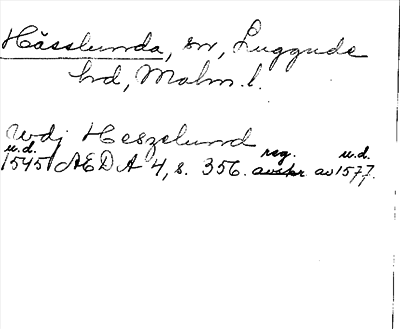 Hässlunda, sn, Luggude
hd, Malm. l.
Wdj Heszelund
u.d. reg. u.d.
1545 AEDA 4, s. 356. avskr av 1577.